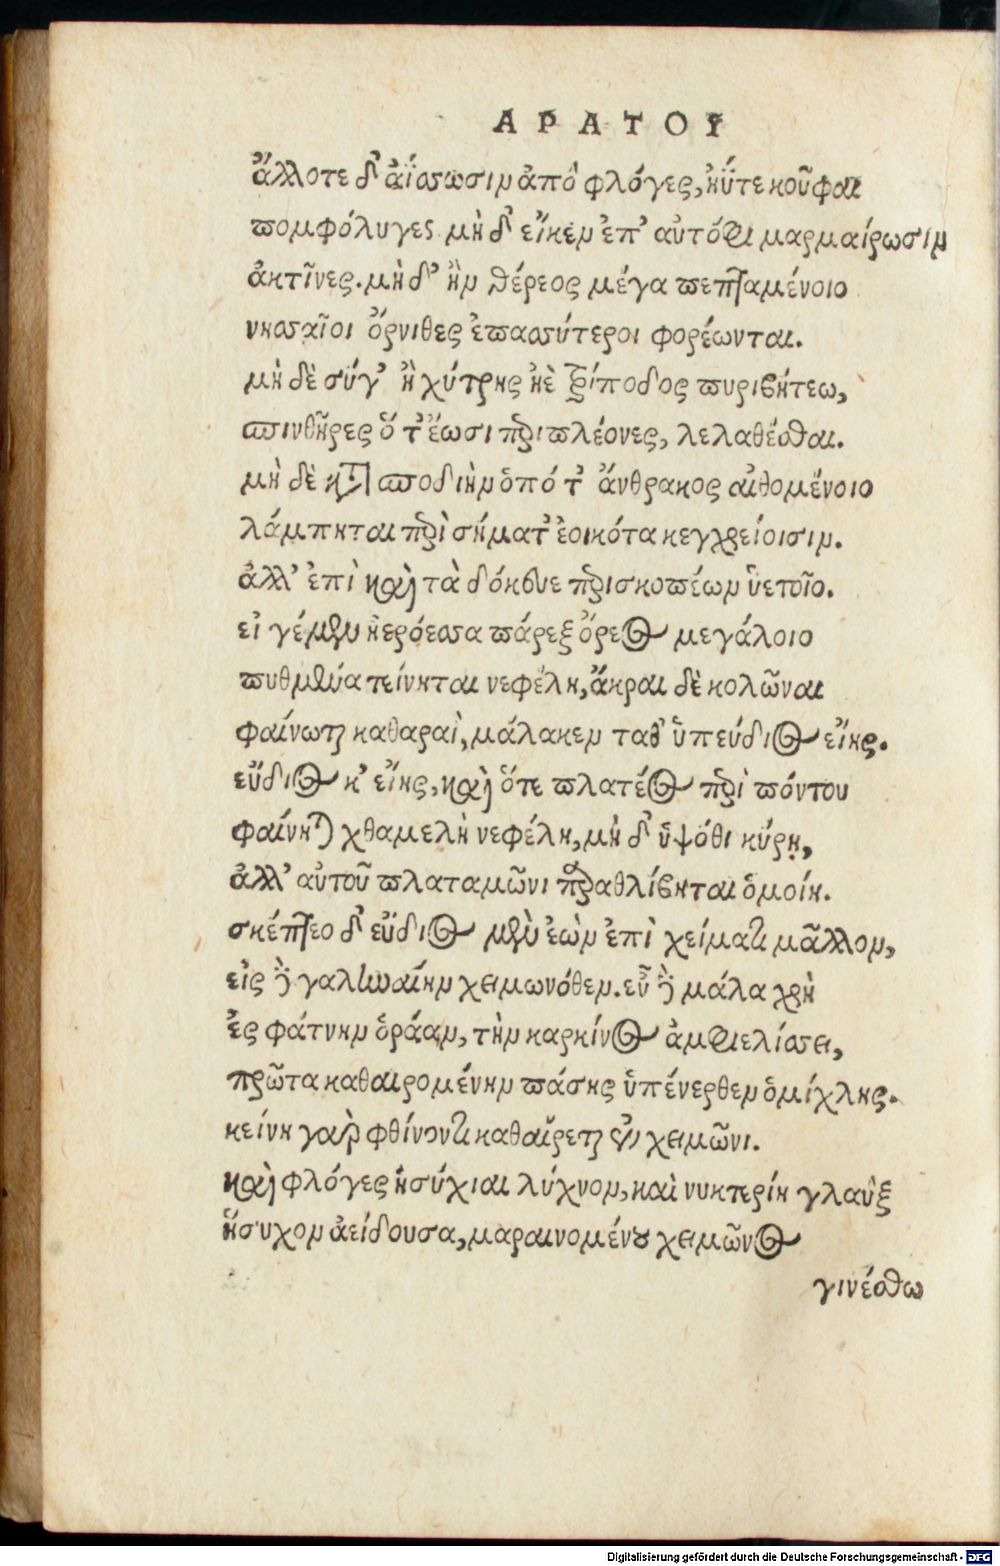 ΑΡΑΤΟΥ
ἄλλοτε δ' ἀΐσσωσιν ἀπὸ φλόγες, ἠΰτε κοῦφαι
πομφόλυγες μὴ δ' εἴκεν ἐπ' αὐτόφι μαρμαίρωσιν
ἀκτῖνες. μὴ δ' ἢν θέρεος μέγα πεπταμένοιο
νησσαῖοι ὄρνιθες ἐπασσύτεροι φορέωνται.
μὴ δὲ σύγ' ἢ χύτρης ἠὲ τρίποδος πυριβήτεω,
σπινθῆρες ὅτ' ἔωσι περιπλέονες, λελαθέσθαι.
μὴ δὲ κατὰ σποδιὴν ὁπότ' ἄνθρακος αἰθομένοιο
λάμπηται περὶ σήματ' ἐοικότα κεγχρείοισιν.
ἀλλ' ἐπὶ καὶ τὰ δόκευε περισκοπέων ὑετοῖο.
εἰ γέ μὲν ἠερόεσσα πάρεξ ὄρεος μεγάλοιο
πυθμένα τείνηται νεφέλη, ἄκραι δὲ κολῶναι
φαίνωνται καθαραὶ, μάλακεν ταθ' ὑπεύδιος εἴης.
εὔδιος κ' εἴης, καὶ ὅτε πλατέος περὶ πόντου
φαίνηται χθαμελὴ νεφέλη, μὴ δ' ὑψόθι κύρῃ,
ἀλλ' αὐτοῦ πλαταμῶνι παραθλίβηται ὁμοίη.
σκέπτεο δ' εὔδιος μὲν ἐὼν ἐπὶ χείματι μᾶλλον,
εἰς δὲ γαληναίην χειμωνόθεν. εὖ δὲ μάλα χρὴ
ἐς φάτνην ὁράαν, τὴν καρκίνος ἀμφιελίσσει,
πρῶτα καθαιρομένην πάσης ὑπένερθεν ὁμίχλης.
κείνη γὰρ φθίνοντι καθαίρεται ἐν χειμῶνι.
καὶ φλόγες ἡσύχιαι λύχνον, καὶ νυκτερίη γλαὺξ
ἥσυχον ἀείδουσα, μαραινομένου χειμῶνος
γινέσθω
Digitalisierung gefördert durch die Deutsche Forschungsgemeinschaft - DFG